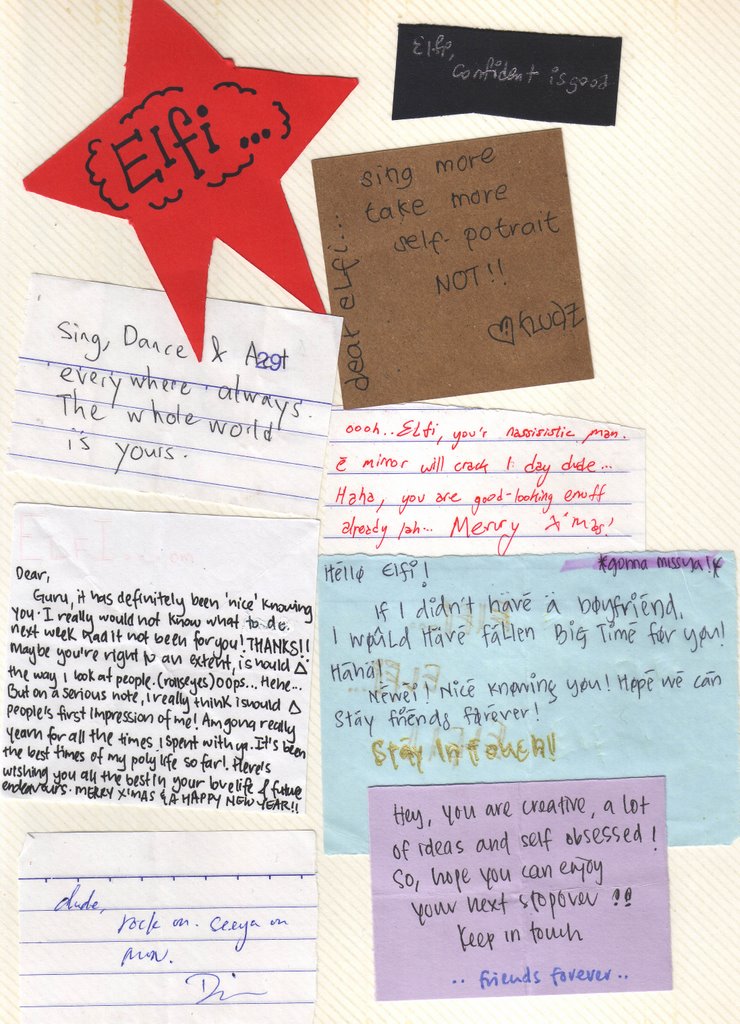 Elfi...
Elfi,
confident is good
dear elfi....
sing more
take more
self-potrait
NOT!!
Sing, Dance & Act
29
everywhere always.
The whole world
is yours.
oooh.. Elfi, you'r nassisistic man.
E mirror will crack 1 day dude...
Haha, you are good-looking enuff
already lah... Merry X'mas!
ELFI
Dear,
Guru, it has definitely been 'nice' knowing
you. I really would not know what to do
next week had it not been for you! THANKS!!
Maybe you're right to an extent, i should Δ
the way I look at people. (rollseyes) Oops... Hehe...
But on a serious note, I really think i should Δ
people's first impression of me! Am gong really
yearn for all the times I spent with ya. It's been
the best times of my poly life so far! Here's
wishing you all the best in your love life & future
endeavours. MERRY X'MAS & A HAPPY NEW YEAR!!
Hello Elfi!
*gonna missya!*
If I didn't have a boyfriend,
I would have fallen Big Time for you!
Haha!
Newei! Nice knowing you! Hope we can
stay friends forever!
Stay In Touch!!
Hey, you are creative, a lot
of ideas and self obsessed!
So, hope you can enjoy
your next stopover !!
Keep in touch
.. friends forever..
dude,
rock on. seeya on
mon.